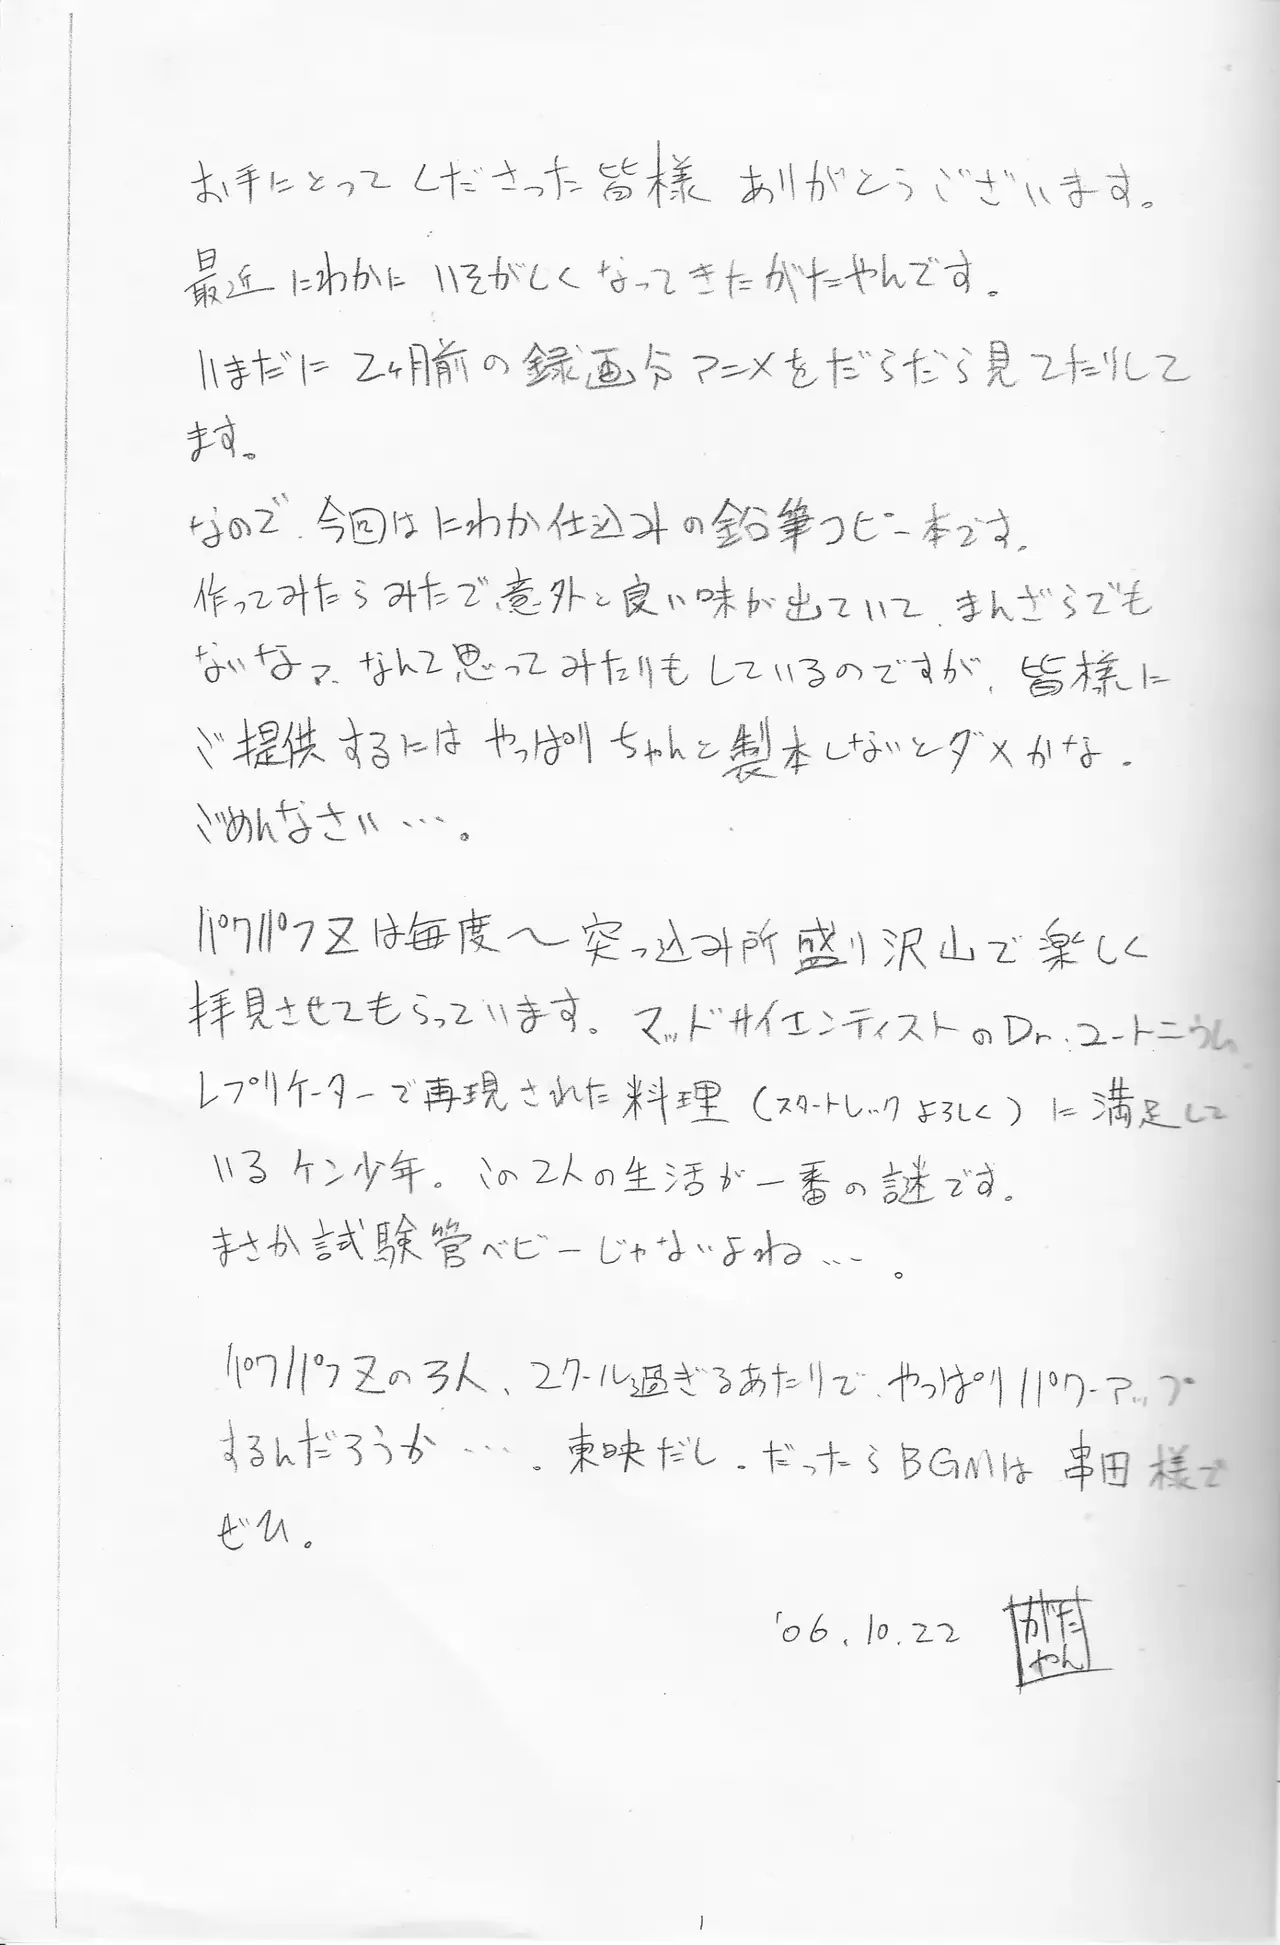 お手にとってくださった皆様 ありがとうございます。
最近にわかに いそがしくなってきたがたやんです。
いまだに 2ヶ月前の録画分アニメをだらだら見てたりして
ます。
なので、今回はにわか仕込みの鉛筆コピー本です。
作ってみたらみたで、意外と良い味が出ていて、まんざらでも
ないなァ、なんて思ってみたりもしているのですが、皆様に
ご提供するにはやっぱりちゃんと製本しないとダメかな.
ごめんなさい…。
パワパフZは毎度〜突っ込み所盛り沢山で楽しく
拝見させてもらっています。マッドサイエンティストのDr.ユートニウム
レプリケーターで再現された料理(スタートレックよろしく)に満足して
いるケン少年。この2人の生活が一番の謎です。
まさか試験管ベビーじゃないよね…。
パワパフZの3人、2クール過ぎるあたりで、やっぱりパワーアップ
するんだろうか…. 東映だし.だったらBGMは串田様で
ぜひ。
'06.10.22
がた
やん
1